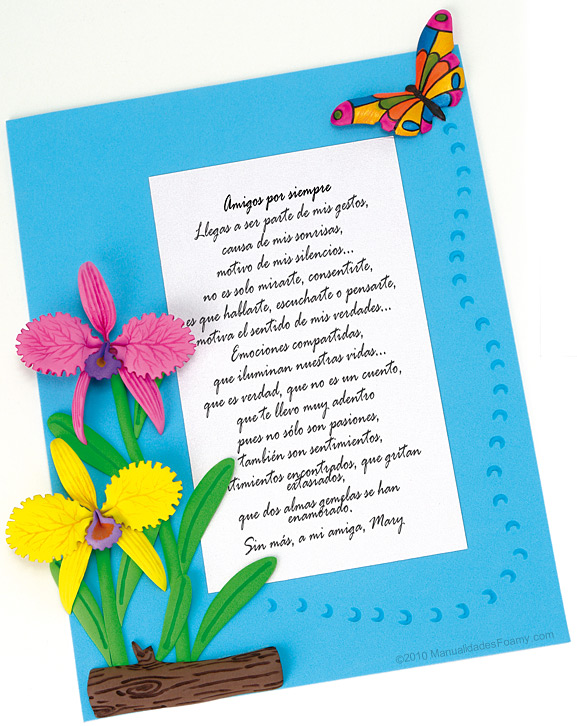 Amigos por siempre
Llegas a ser parte de mis gestos,
causa de mis sonrisas,
motivo de mis silencios...
no es solo mirarte, consentirte,
es que hablarte, escucharte o pensarte,
motiva el sentido de mis verdades...
Emociones compartidas,
que iluminan nuestras vidas...
que es verdad, que no es un cuento,
que te llevo muy adentro
pues no sólo son pasiones,
también son sentimientos,
timientos encontrados, que gritan
extasiados,
que dos almas gemelas se han
enamorado.
Sin más, a mi amiga, Mary
©2010 ManualidadesFoamy.com